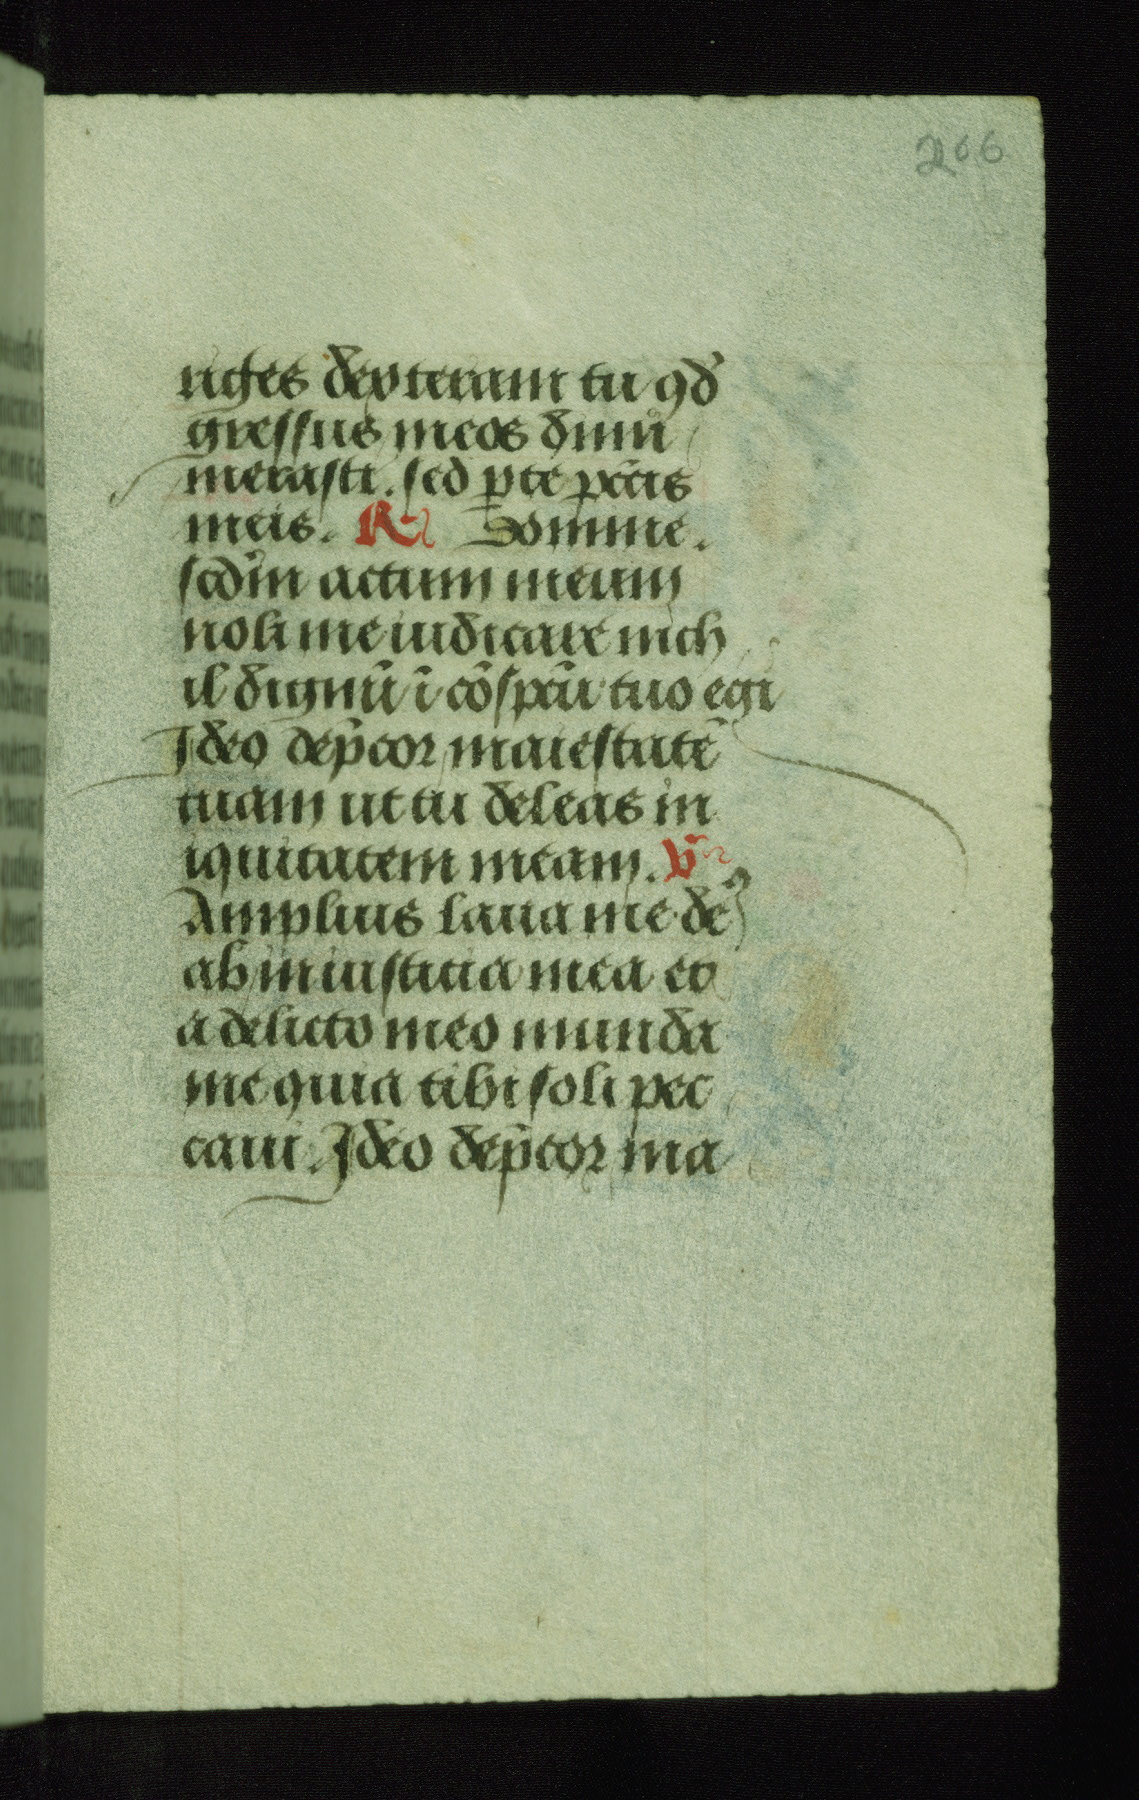 266
riges dexteram tu qd̄
gressus meos dinu
merasti. sed p̱ce pctīs
meis. R Domine.
scdm̄ actum meum
noli me iudicare nich
il dignū ī cōspctū tuo egi
Ideo dep̄cor maiestatē
tuam ut tu deleas in
iquitatem meam. v̄
Amplius laua me dē
ab iniusticia mea et
a delicto meo munda
me quia tibi soli pec
caui. Ideo dep̄cor ma